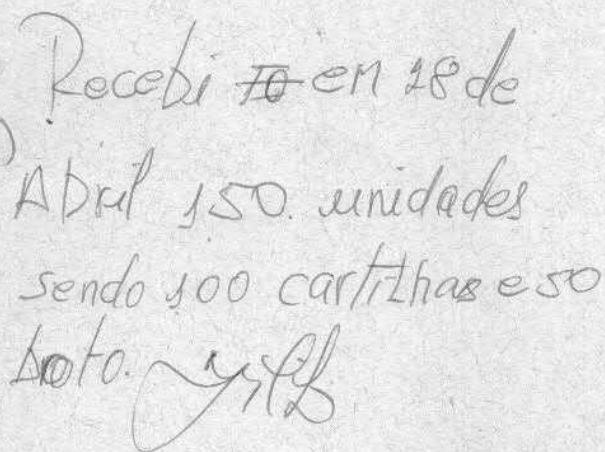 Recebi em 18 de
Abril 150. unidades
sendo 100 cartilhas e 50